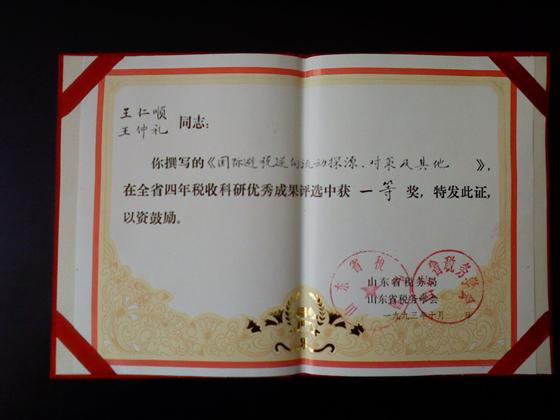 王仁顺
王仲礼 同志:
你撰写的《国际避税逆向流动探源、对策及其他》,
在全省四年税收科研优秀成果评选中获 一等 奖,特发此证,
以资鼓励。
山东省税务局
山东省税务学会
一九九三年十月 日